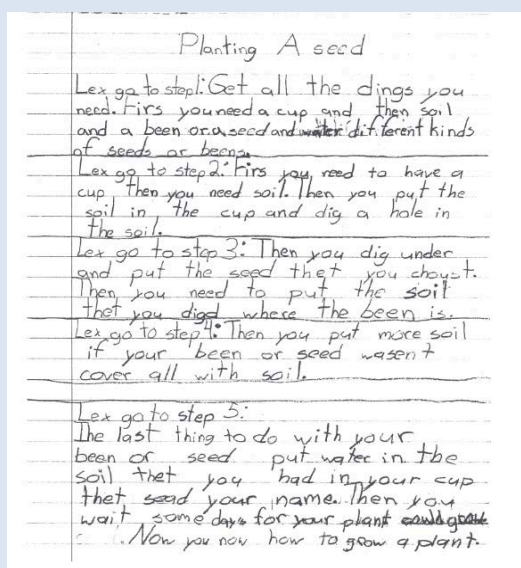 Planting A seed
Lex go to step1: Get all the dings you
need. Firs you need a cup and then soil
and a been or a seed and different kinds
of seeds or beens.
Lex go to step 2: Firs you need to have a
cup Then you need soil. Then you put the
soil in the cup and dig a hole in
the soil.
Lex go to step 3: Then you dig under
and put the seed thet you choust.
Then you need to put the soil
thet you digd where the been is.
Lex go to step 4: Then you put more soil
if your been or seed wasent
cover all with soil.
Lex go to step 5:
The last thing to do with your
been or seed put water in the
soil thet you had in your cup
thet sead your name. Then you
wait some days for your plant
Now you now how to grow a plant.